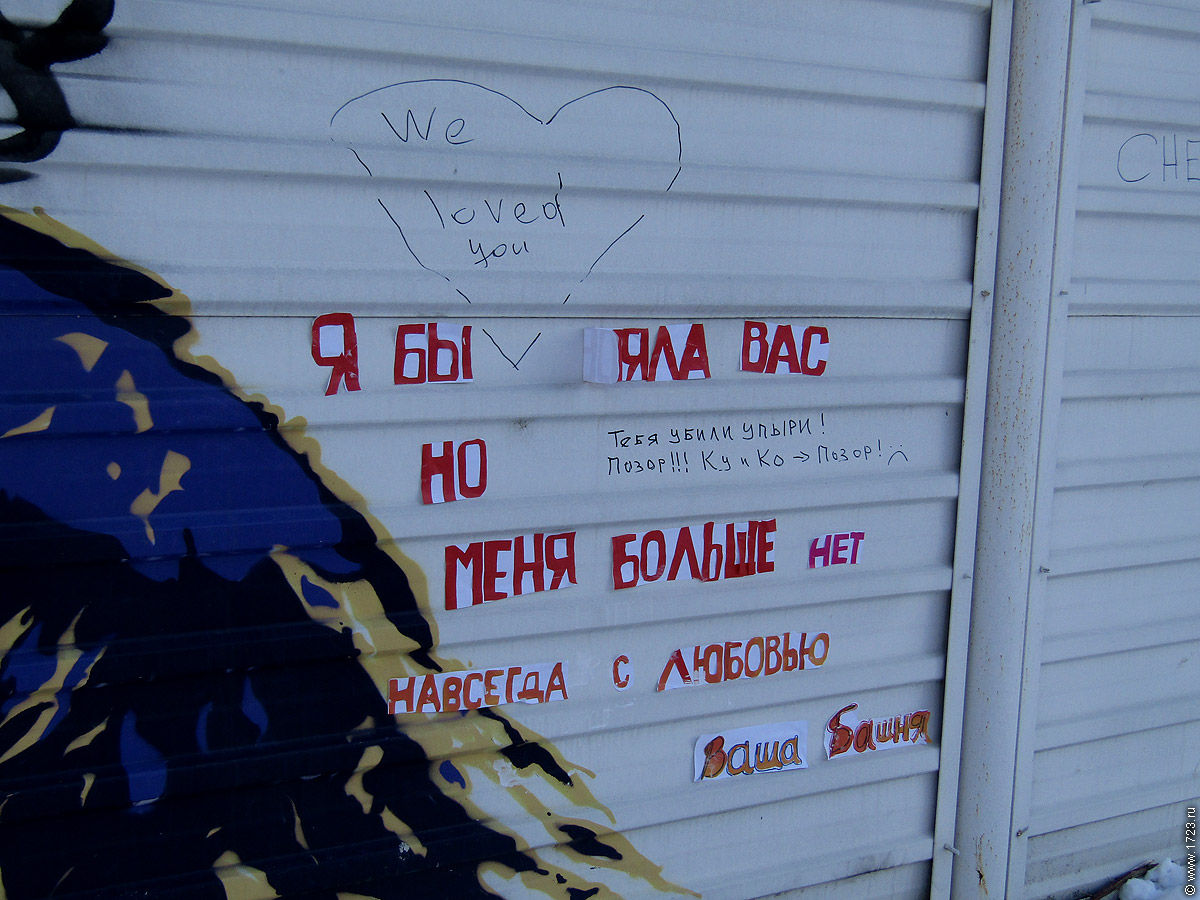 We
loved
you
СНЕ
Я БЫ ЯЛА ВАС
Тебя убили упыри!
НО
Позор!!! Ку и Ко → Позор! :(
МЕНЯ БОЛЬШЕ НЕТ
НАВСЕГДА С ЛЮБОВЬЮ
Ваша Башня
© www.1723.ru